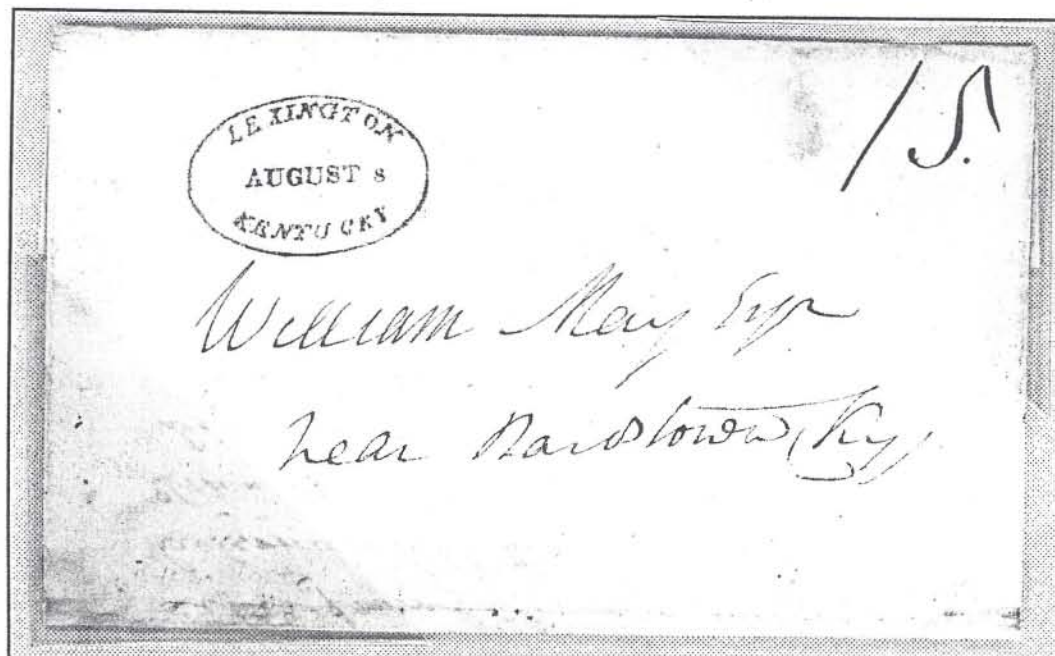 15.
LEXINGTON
AUGUST 8
KENTUCKY
William May Esqr
near Bardstown, Ky,